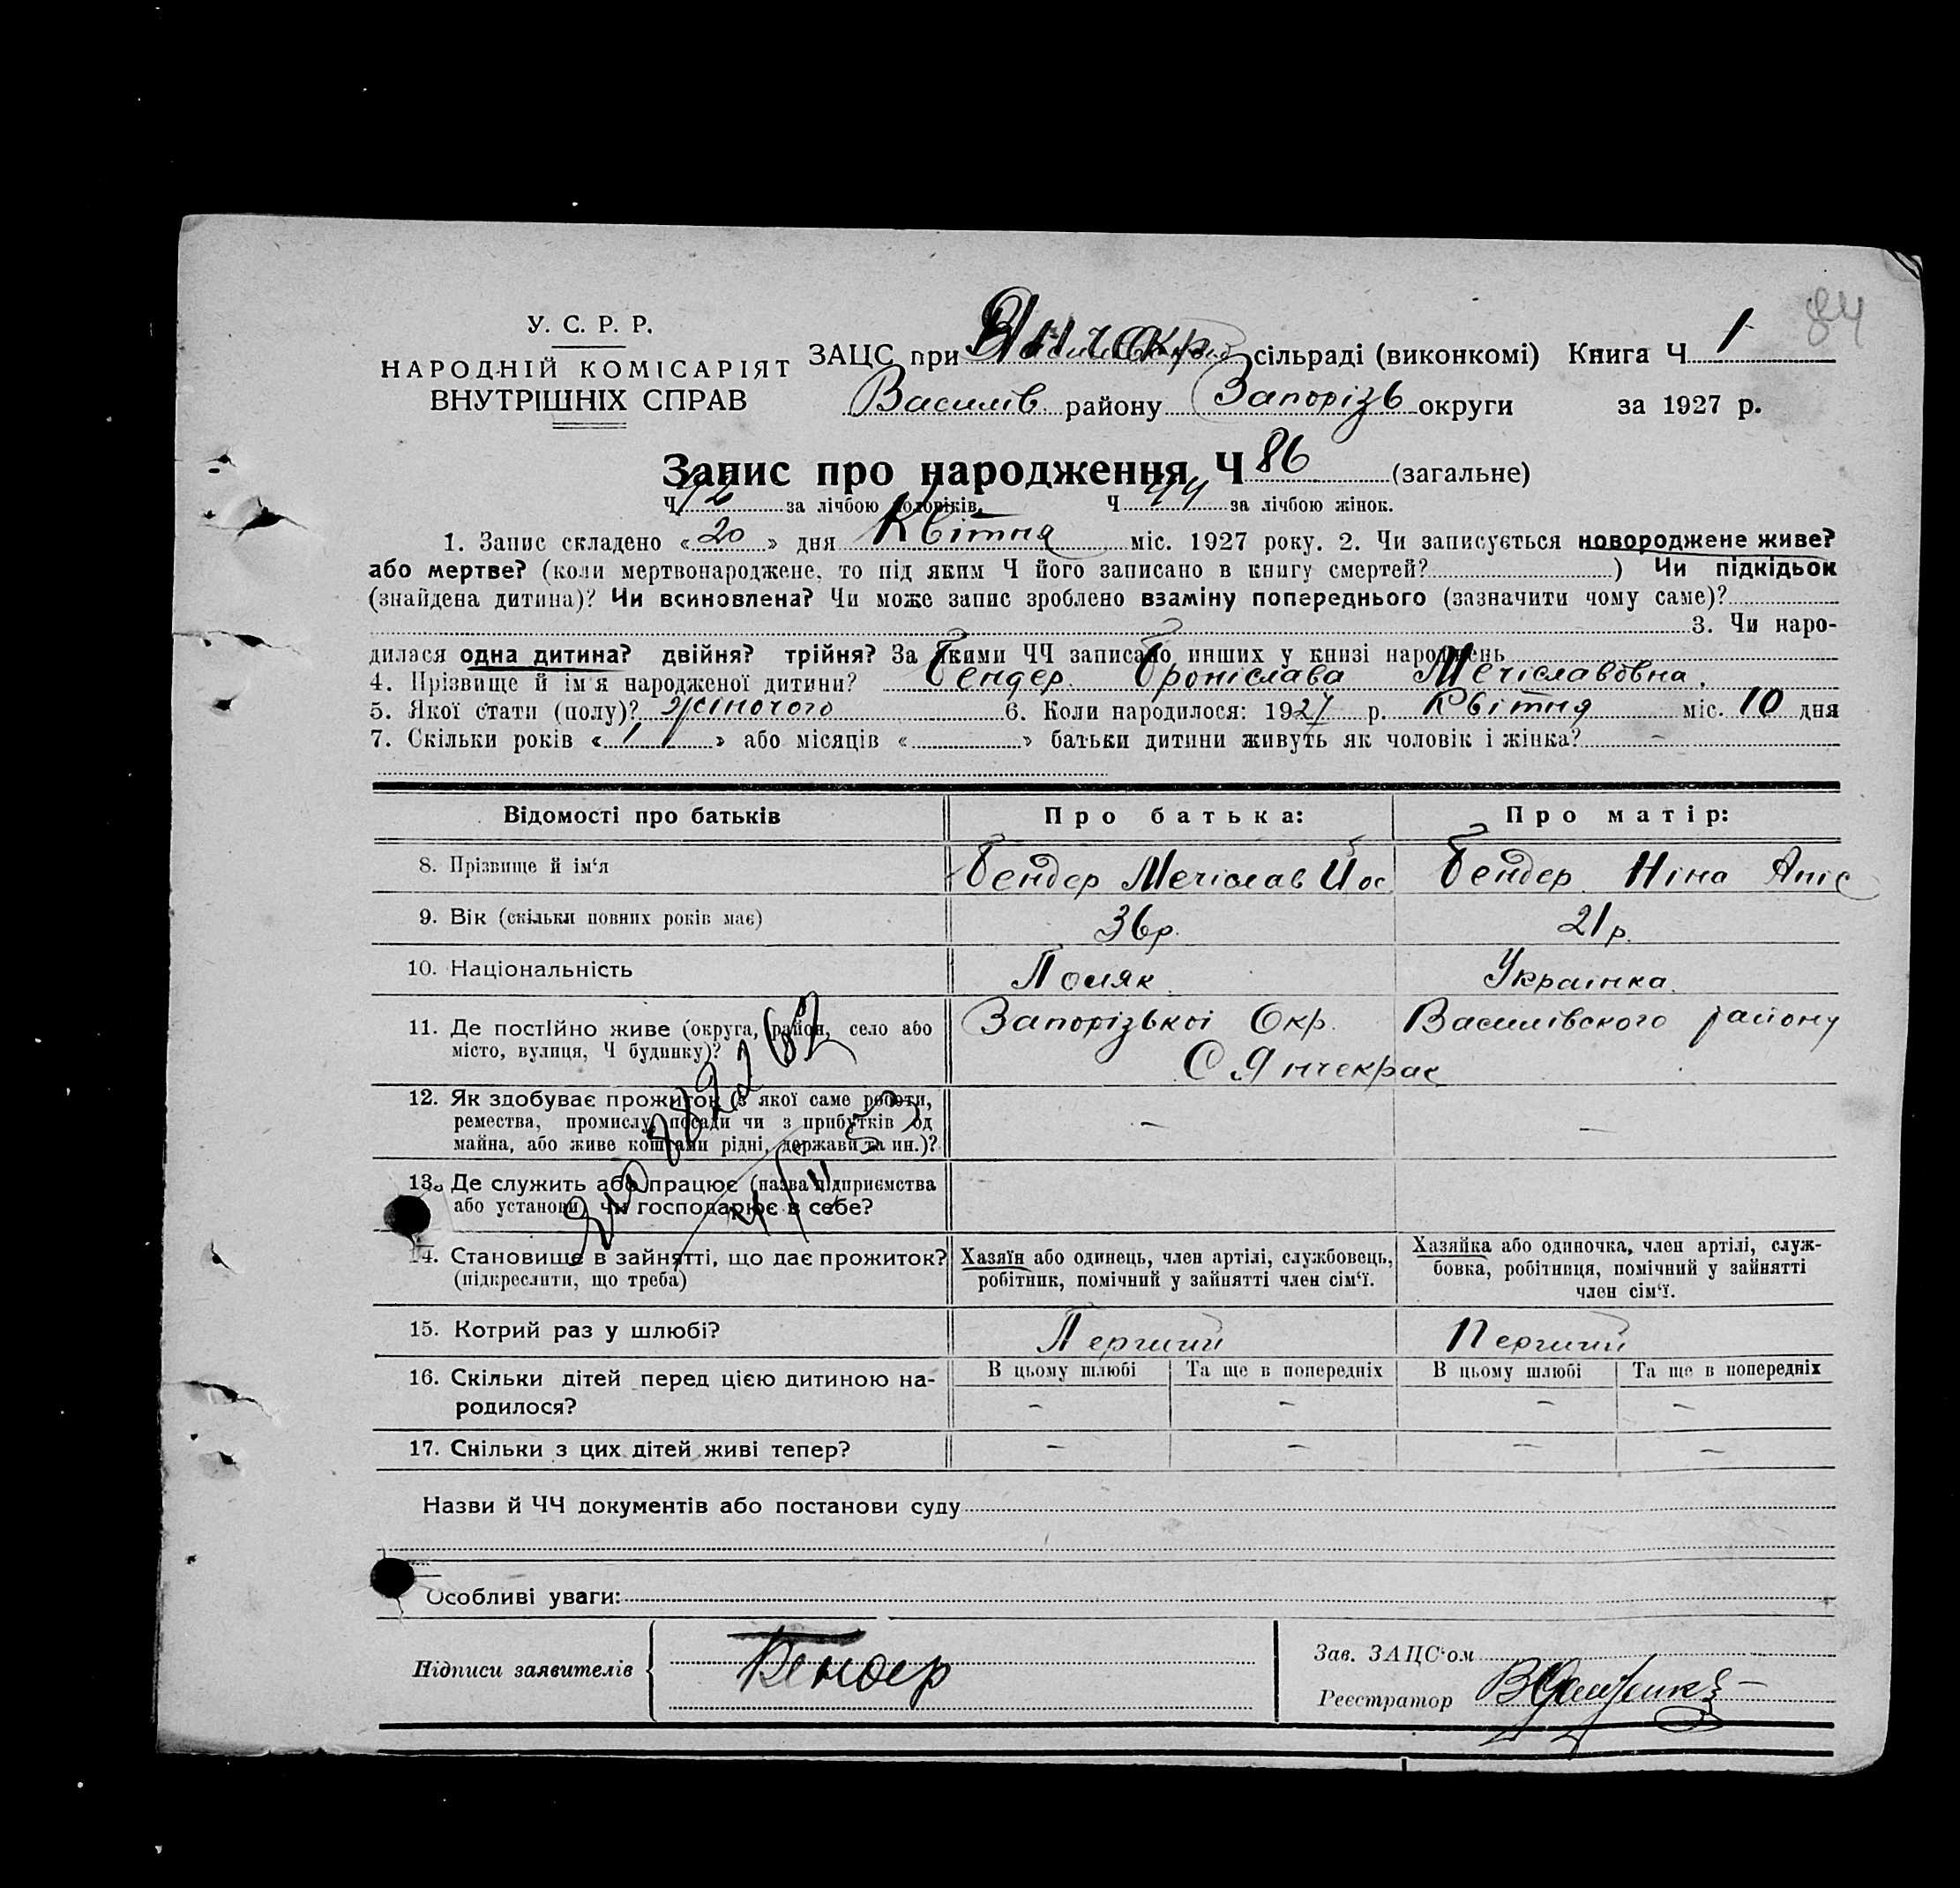 84
У. С. Р. Р.
НАРОДНІЙ КОМІСАРІЯТ
ВНУТРІШНІХ СПРАВ
ЗАЦС при Янчекр сільраді (виконкомі) Книга Ч 1
Василів району Запорізь округи за 1927 р.
Запис про народження Ч 86 (загальне)
Ч 42 за лічбою чоловіків. Ч 44 за лічбою жінок.
1. Запис складено «20» дня Квітня міс. 1927 року. 2. Чи записується новороджене живе?
або мертве? (коли мертвонароджене, то під яким Ч його записано в книгу смертей? ) Чи підкідьок
(знайдена дитина)? Чи всиновлена? Чи може запис зроблено взаміну попереднього (зазначити чому саме)?
3. Чи наро-
дилася одна дитина? двійня? трійня? За якими ЧЧ записано инших у книзі народжень
4. Прізвище й ім'я народженої дитини? Бендер Броніслава Мечіславовна.
5. Якої стати (полу)? жіночого 6. Коли народилося: 1927 р. Квітня міс. 10 дня
7. Скільки років « 1 » або місяців « » батьки дитини живуть як чоловік і жінка? –
Відомості про батьків Про батька: Про матір:
8. Прізвище й ім'я Бендер Мечіслав Йос Бендер Ніна Аніс
9. Вік (скільки повних років має) 36р. 21р.
10. Національність Поляк Українка.
11. Де постійно живе (округа, район, село або Запорізькоі Окр. Василівского району
місто, вулиця, Ч будинку)? С Янчекрас
12. Як здобуває прожиток (з якої саме роботи,
ремества, промислу, посади чи з прибутків од – –
майна, або живе коштами рідні, держави та ин.)?
13. Де служить або працює (назва підприємства
або установи) чи господарює в себе?
14. Становище в зайнятті, що дає прожиток? Хазяїн або одинець, член артілі, службовець, Хазяйка або одиночка, член артілі, служ-
(підкреслити, що треба) робітник, помічний у зайнятті член сім'ї. бовка, робітниця, помічний у зайнятті
член сім'ї.
15. Котрий раз у шлюбі? Перший Перший
16. Скільки дітей перед цією дитиною на- В цьому шлюбі Та ще в попередніх В цьому шлюбі Та ще в попередніх
родилося? – – – –
17. Скільки з цих дітей живі тепер? – – – –
Назви й ЧЧ документів або постанови суду
Особливі уваги:
Підписи заявителів Бендер
Зав. ЗАЦС'ом
Реєстратор